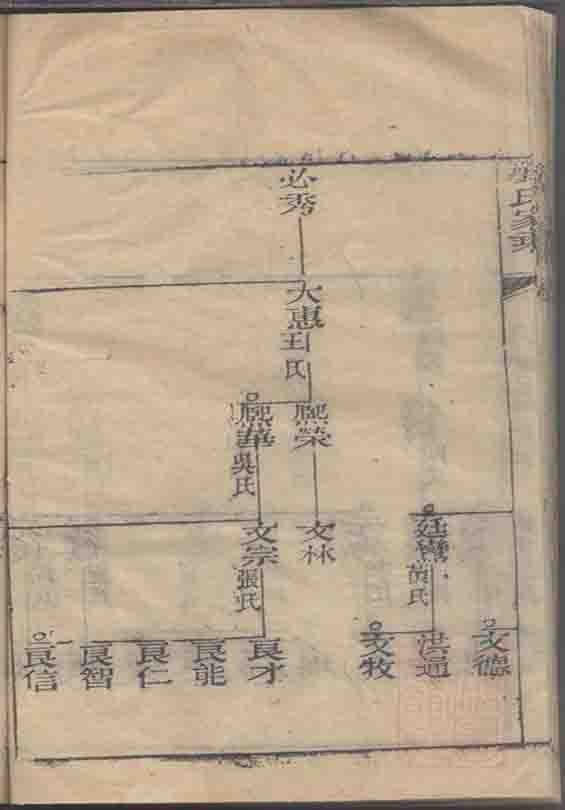 氏家
必秀
大惠
王氏
熙榮
熙華
吳氏
廷
氏
文林
文宗
張氏
文德
洪通
文牧
良才
良能
良仁
良智
良信